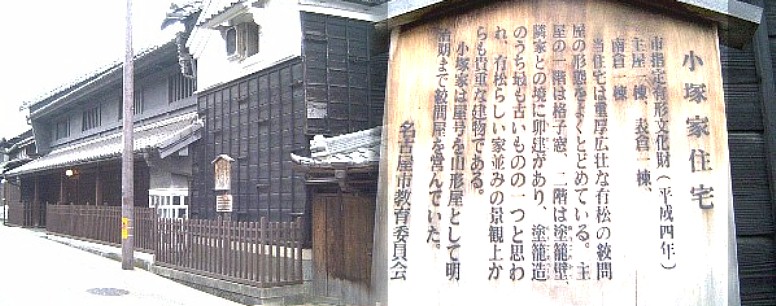 小塚家住宅
市指定有形文化財(平成四年)
主屋一棟、表倉一棟、
南倉一棟
当住宅は重厚広壮な有松の絞問
屋の形態をよくとどめている。主
屋の一階は格子窓、二階は塗籠壁、
隣家との境に卯建があり、塗籠造
のうち最も古いものの一つと思わ
れ、有松らしい家並みの景観上か
らも貴重な建物である。
小塚家は屋号を山形屋として明
治期まで絞問屋を営んでいた。
名古屋市教育委員会